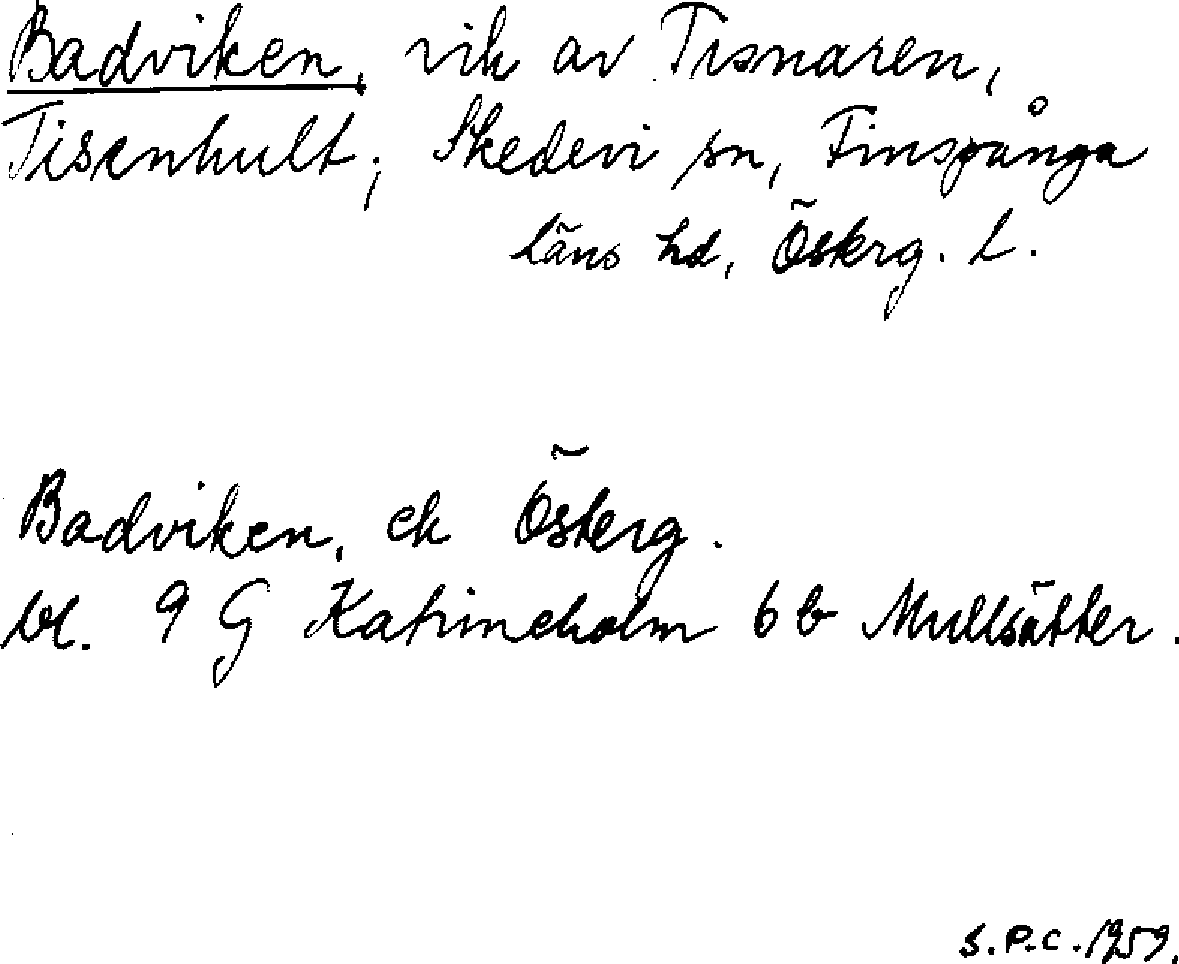 Badviken, vik av Tisnaren,
Tisenhult, Skedevi sn, Finspånga
läns hd, Österg. l.
Badviken, ek Österg.
bl. 9 G Katrineholm 6 b Mullsätter.
S.P.C. 1959.